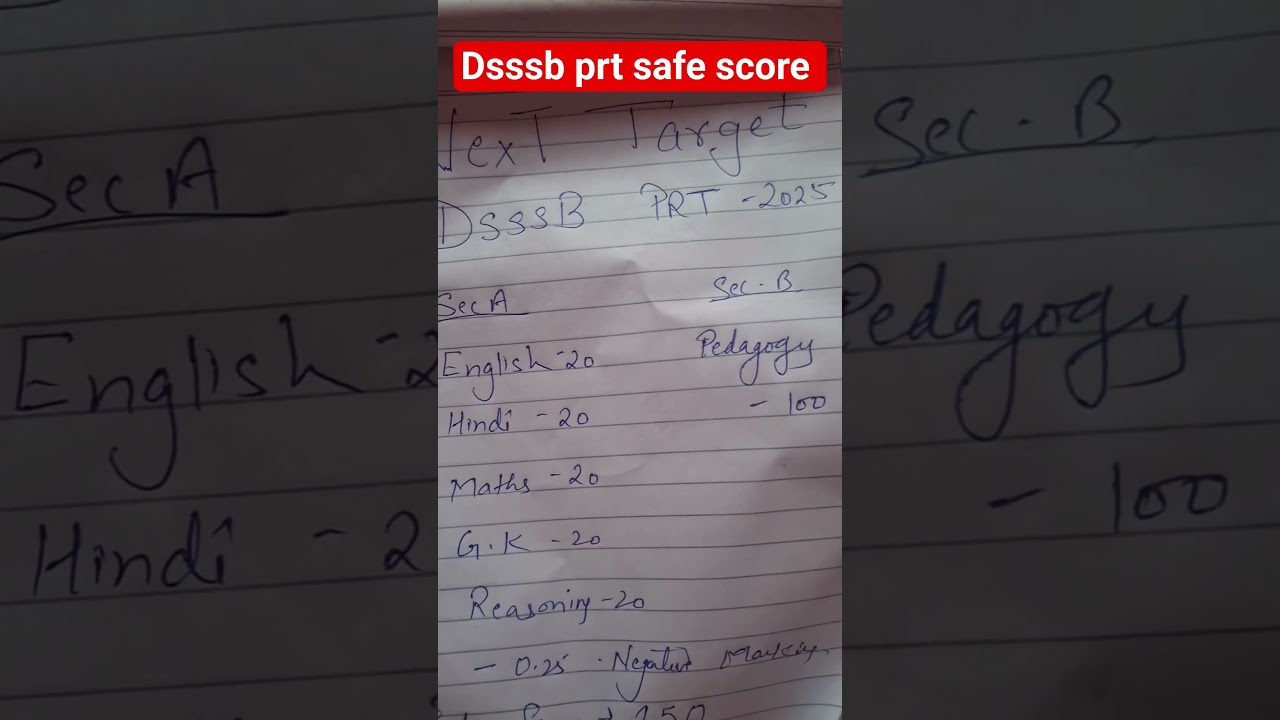 Dsssb prt safe score
Next Target
DSSSB PRT - 2025
Sec A
Sec - B
English - 20
Pedagogy
- 100
Hindi - 20
Maths - 20
G.K - 20
Reasoning - 20
- 0.25 . Negative Marking
Sec A
English - 2
Hindi - 2
Sec - B
Pedagogy
- 100